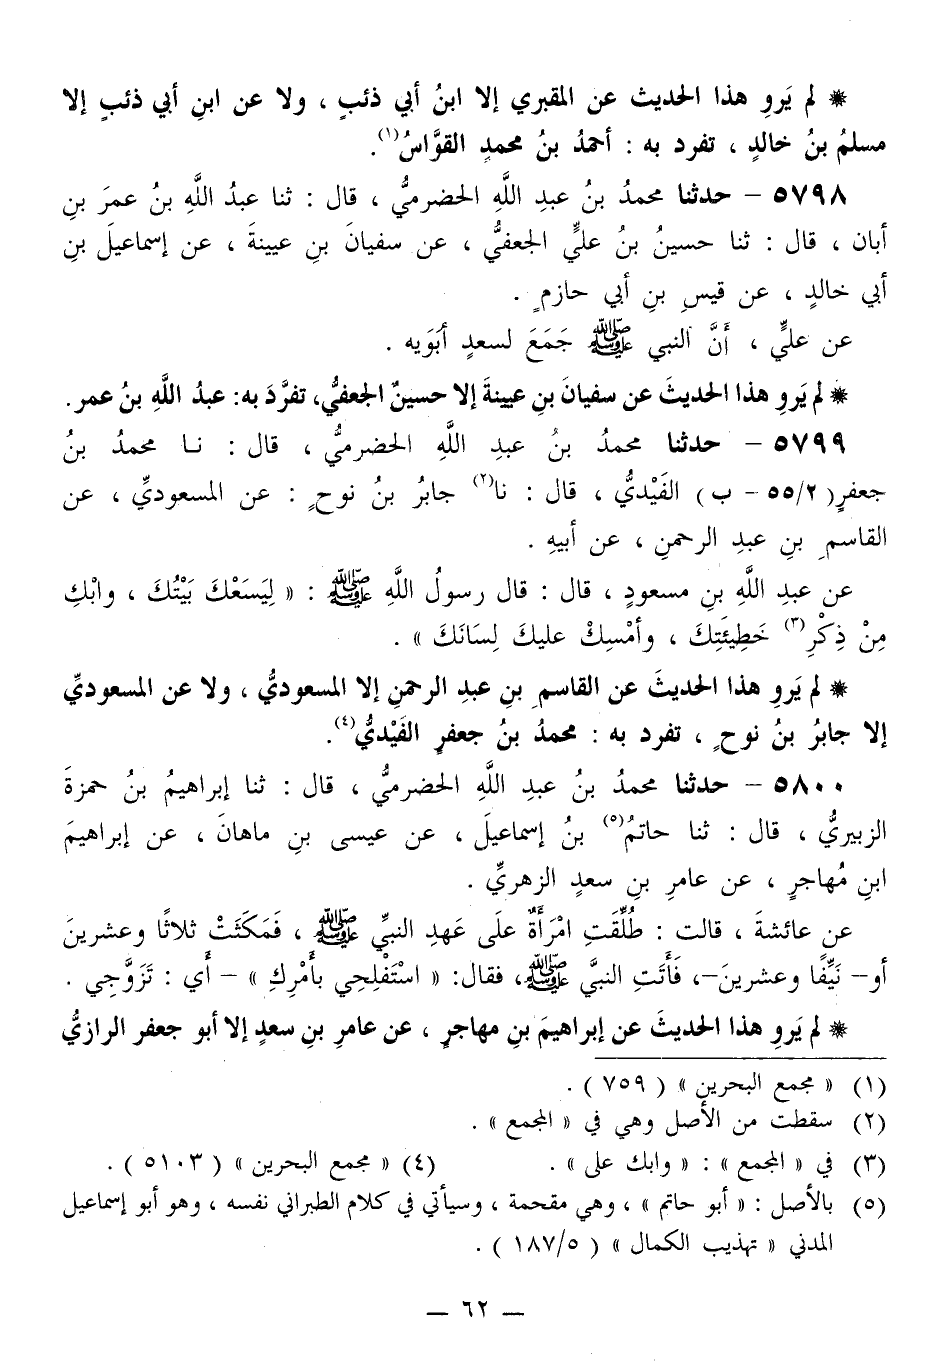 * لم يَروِ هذا الحديث عن المقبري إلا ابنُ أبي ذئبٍ ، ولا عن ابنِ أبي ذئبٍ إلا
مسلمُ بنُ خالدٍ ، تفرد به : أحمدُ بنُ محمدٍ القوَّاسُ(١).
٥٧٩٨ – حدثنا محمدُ بنُ عبدِ اللَّهِ الحضرميُّ ، قال : ثنا عبدُ اللَّهِ بنُ عمرَ بنِ
أبان ، قال : ثنا حسينُ بنُ عليٍّ الجعفيُّ ، عن سفيانَ بنِ عيينةَ ، عن إسماعيلَ بنِ
أبي خالدٍ ، عن قيسِ بنِ أبي حازمٍ .
عن عليٍّ ، أَنَّ النبي ﷺ جَمَعَ لسعدٍ أبَوَيه .
* لم يَروِ هذا الحديثَ عن سفيانَ بنِ عيينةَ إلا حسينٌ الجعفيُّ، تفرَّدَ به: عبدُ اللَّهِ بنُ عمر.
٥٧٩٩ – حدثنا محمدُ بنُ عبدِ اللَّهِ الحضرميُّ ، قال : نـا محمدُ بنُ
جعفرٍ( ٥٥/٢ – ب ) الفَيْديُّ ، قال : نا(٢) جابرُ بنُ نوحٍ : عن المسعوديِّ ، عن
القاسمِ بنِ عبدِ الرحمنِ ، عن أبيهِ .
عن عبدِ اللَّهِ بنِ مسعودٍ ، قال : قال رسولُ اللَّهِ ﷺ : « لِيَسَعْكَ بَيْتُكَ ، وابْكِ
مِنْ ذِكْرِ(٣) خَطِيئَتِكَ ، وأمْسِكْ عليكَ لِسَانَكَ » .
* لم يَروِ هذا الحديثَ عن القاسمِ بنِ عبدِ الرحمنِ إلا المسعوديُّ ، ولا عن المسعوديِّ
إلا جابرُ بنُ نوحٍ ، تفرد به : محمدُ بنُ جعفرٍ الفَيْديُّ(٤).
٥٨٠٠ – حدثنا محمدُ بنُ عبدِ اللَّهِ الحضرميُّ ، قال : ثنا إبراهيمُ بنُ حمزةَ
الزبيريُّ ، قال : ثنا حاتمُ(٥) بنُ إسماعيلَ ، عن عيسى بنِ ماهانَ ، عن إبراهيمَ
ابنِ مُهاجرٍ ، عن عامرِ بنِ سعدٍ الزهريِّ .
عن عائشةَ ، قالت : طُلِّقَتِ امْرَأَةٌ علَى عَهدِ النبيِّ ﷺ ، فَمَكَثَتْ ثلاثًا وعشرينَ
أو– نَيِّفًا وعشرينَ–، فَأَتَتِ النبيَّ ﷺ، فقال: « اسْتَفْلِحِي بأَمْرِكِ » – أَي : تَزَوَّجِي .
* لم يَروِ هذا الحديثَ عن إبراهيمَ بنِ مهاجرٍ ، عن عامرِ بنِ سعدٍ إلا أبو جعفر الرازيُّ
(١) « مجمع البحرين » ( ٧٥٩ ) .
(٢) سقطت من الأصل وهي في « المجمع » .
(٣) في « المجمع » : « وابك على » . (٤) « مجمع البحرين » ( ٥١٠٣ ) .
(٥) بالأصل : « أبو حاتم » ، وهي مقحمة ، وسيأتي في كلام الطبراني نفسه ، وهو أبو إسماعيل
المدني « تهذيب الكمال » ( ١٨٧/٥ ) .
– ٦٢ –